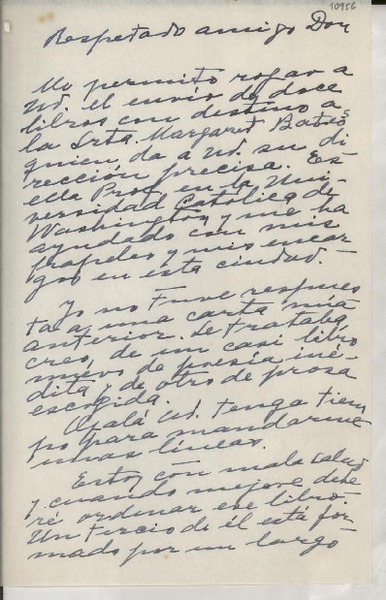 10956
Respetado amigo Don
Me permito rogar a
Ud. el envío de doce
libros con destino a
la Srta. Margaret Bates
quien da a Ud. su di
rección precisa. Es
ella Prof. en la Uni-
versidad Católica de
Washington y me ha
ayudado con mis
papeles y mis encar
gos en esta ciudad.—
Yo no tuve respues
ta a una carta mía
anterior. Se trataba,
creo, de un casi libro
nuevo de poesía iné-
dita y de otro de prosa
escogida.
Ojalá Ud. tenga tiem
po para mandarme
unas líneas.
Estoy con mala salud
y cuando mejore debe
ré ordenar ese libro.
Un tercio de él está for-
mado por un largo